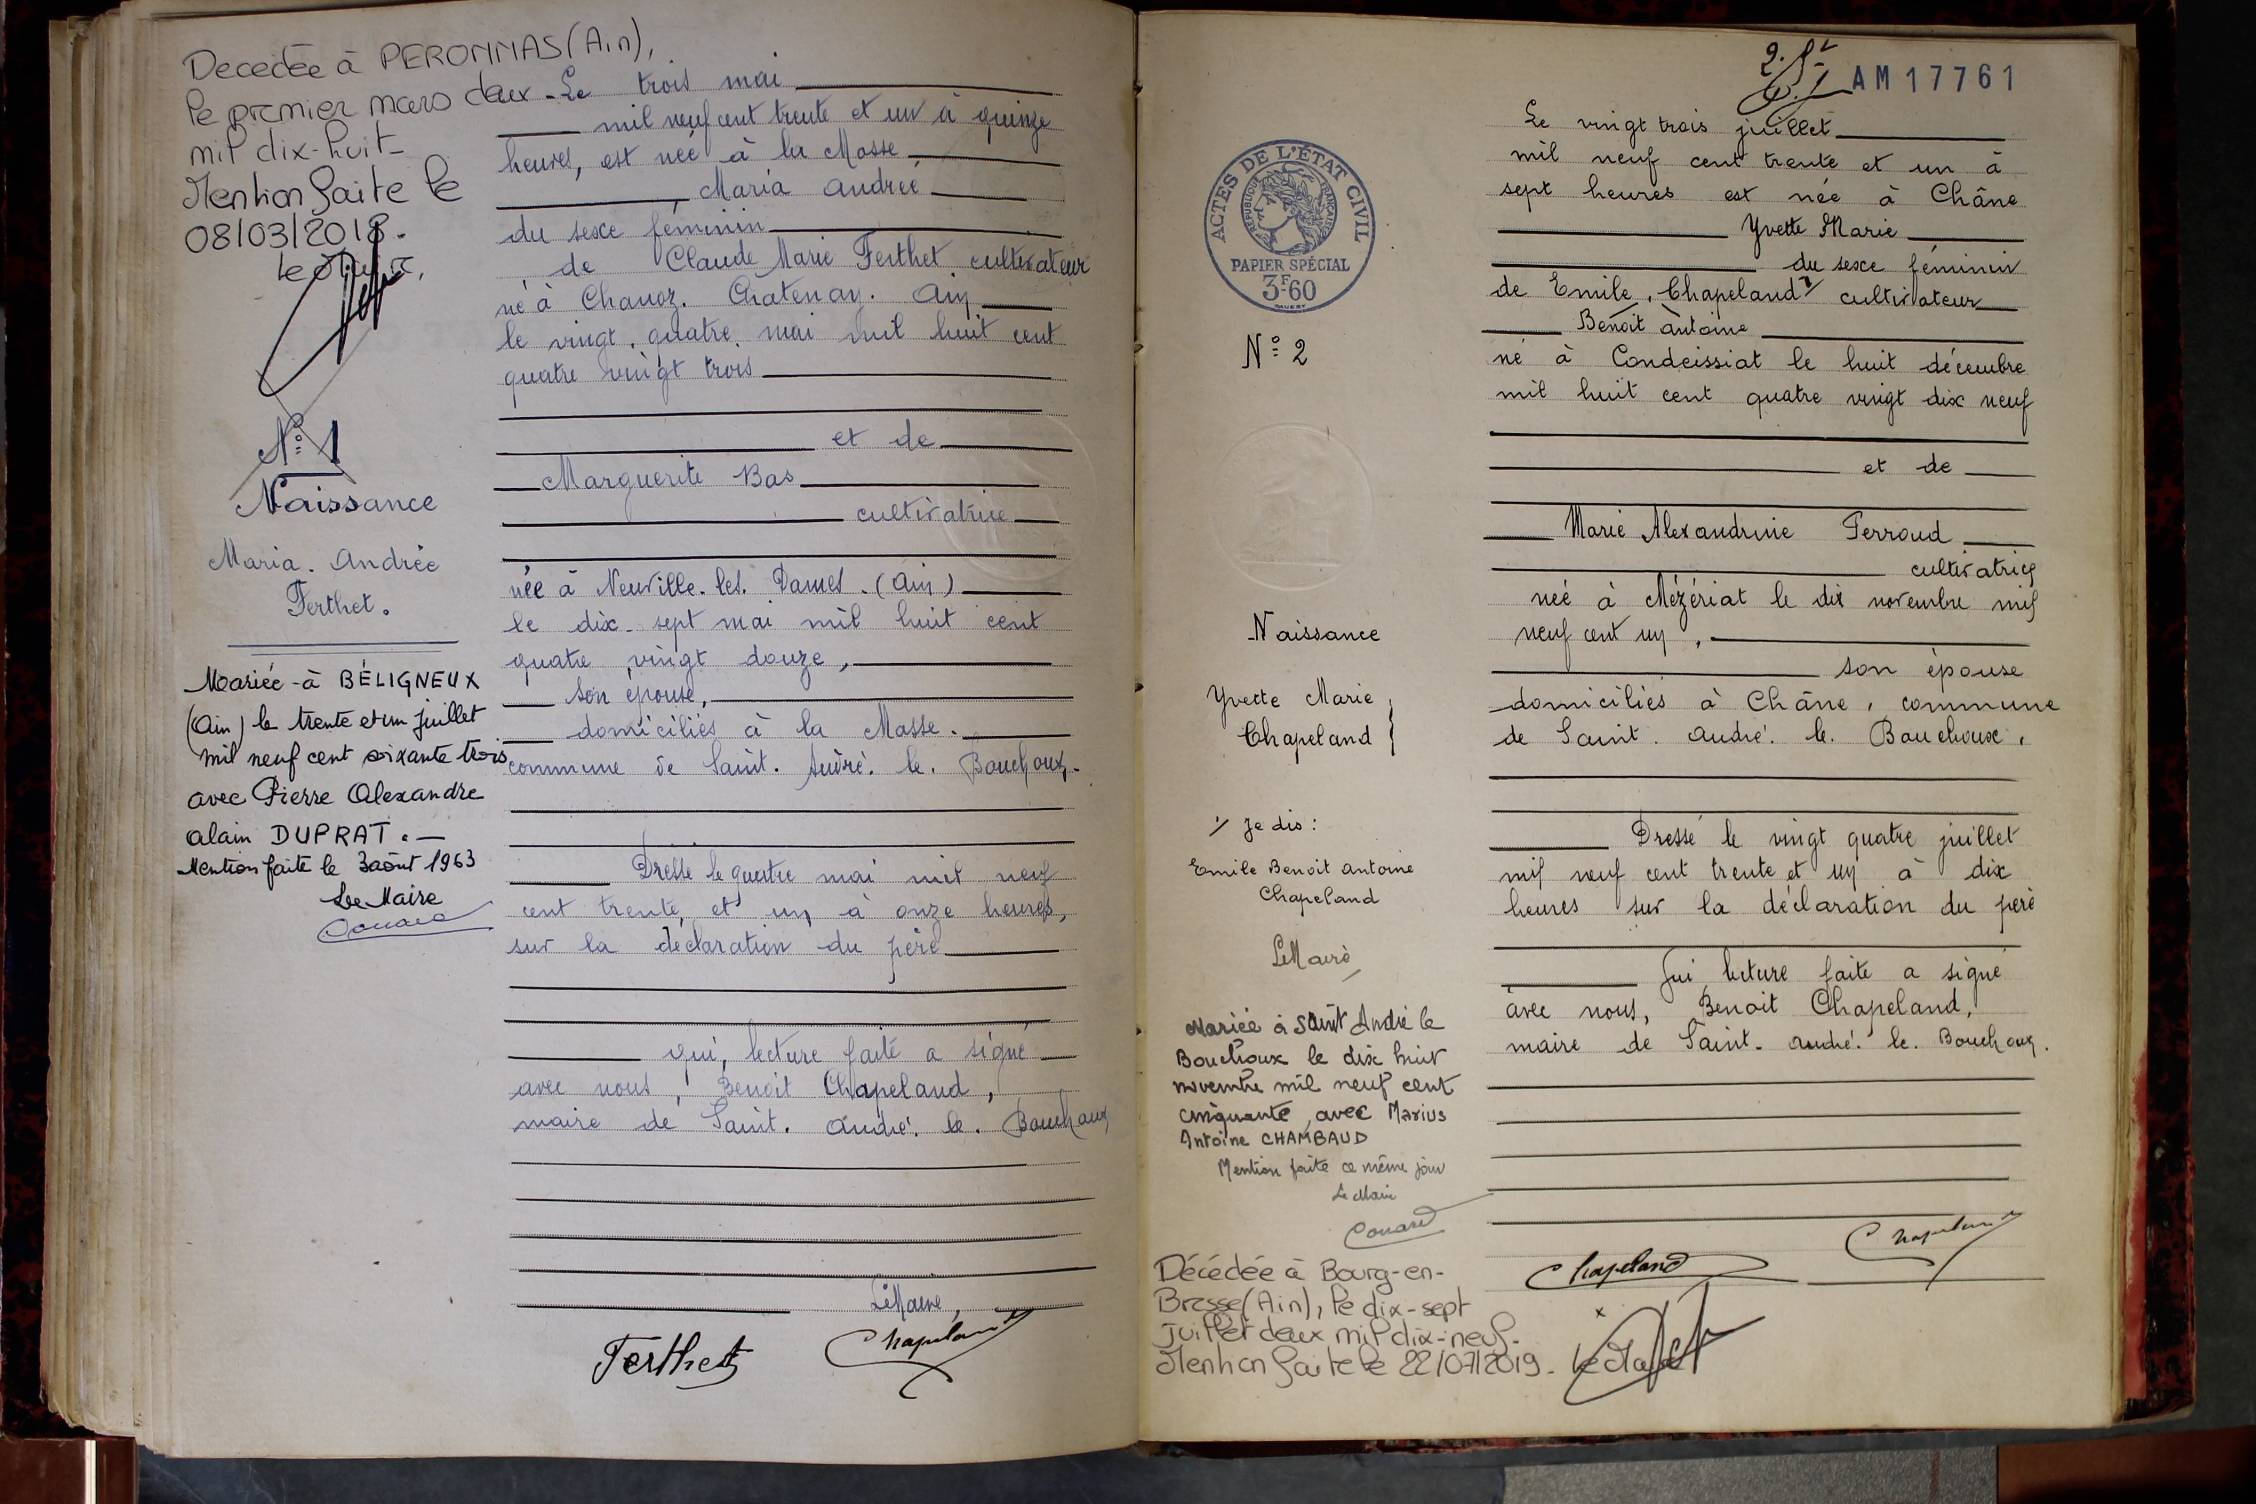 Decédée à PERONNAS (Ain),
le premier mars deux
mil dix-huit-
Mention faite le
08/03/2018.
N° 1
Naissance
Maria. Andrée
Ferthet.
Mariée à BÉLIGNEUX
(Ain) le trente et un juillet
mil neuf cent soixante trois
avec Pierre Alexandre
alain DUPRAT. —
Mention faite le 3 août 1963
Le Maire
Couard
Le trois mai
mil neuf cent trente et un à quinze
heures, est née à la Masse
Maria Andrée
du sexe féminin
de Claude Marie Ferthet cultivateur
né à Chanoz. Chatenay. Ain
le vingt. quatre. mai mil huit cent
quatre vingt trois
et de
Marguerite Bas
cultivatrice
née à Neuville. les. Dames. (Ain)
le dix-sept mai mil huit cent
quatre vingt douze,
son épouse,
domiciliés à la Masse.
commune de Saint. André. le. Bouchoux.
Dressé le quatre mai mil neuf
cent trente et un à onze heures,
sur la déclaration du père
qui, lecture faite a signé
avec nous, Benoit Chapeland,
maire de Saint. André. le. Bouchoux
Le Maire,
Ferthet
Chapeland
AM17761
ACTES DE L'ÉTAT CIVIL
RÉPUBLIQUE FRANÇAISE
PAPIER SPÉCIAL
3F60
N° 2
Naissance
Yvette Marie
Chapeland
1/ Je dis :
Emile Benoit Antoine
Chapeland
Le Maire
Mariée à Saint André le
Bouchoux le dix huit
novembre mil neuf cent
cinquante, avec Marius
Antoine CHAMBAUD
Mention faite ce même jour
Le Maire
Couard
Décédée à Bourg-en-
Bresse (Ain), le dix-sept
juillet deux mil dix-neuf-
Mention faite le 22/07/2019-
Le vingt trois juillet
mil neuf cent trente et un à
sept heures est née à Châne
Yvette Marie
du sexe féminin
de Emile, Chapeland 1/ cultivateur
Benoit Antoine
né à Condeissiat le huit décembre
mil huit cent quatre vingt dix neuf
et de
Marie Alexandrine Ferroud
cultivatrice
née à Mézériat le dix novembre mil
neuf cent un,
son épouse
domiciliés à Châne, commune
de Saint. André. le. Bouchoux,
Dressé le vingt quatre juillet
mil neuf cent trente et un à dix
heures sur la déclaration du père
qui, lecture faite a signé
avec nous, Benoit Chapeland,
maire de Saint-André. le. Bouchoux.
Chapeland
Chapeland